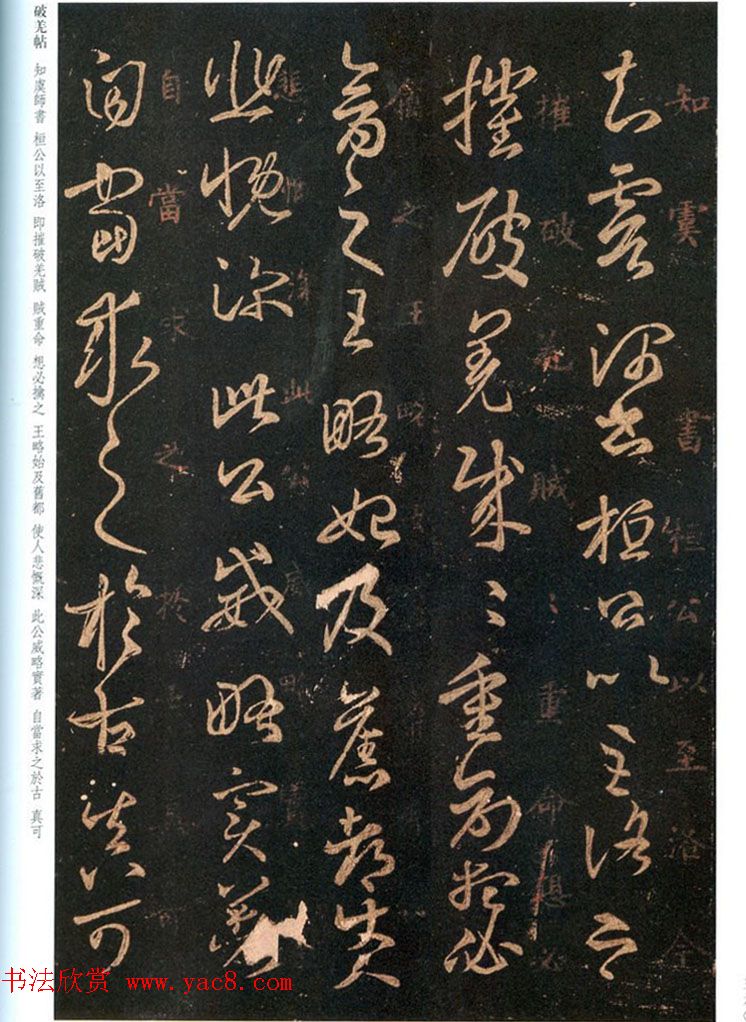 知虞帥書桓公以至洛即
摧破羌賊〻重命想必
禽之王略始及舊都使人
悲慨深此公威略實著
自當求之於古真可
破羌帖 知虞師書 桓公以至洛 即摧破羌賊 賊重命 想必擒之 王略始及舊都 使人悲慨深 此公威略實著 自當求之於古 真可
书法欣赏 www.yac8.com